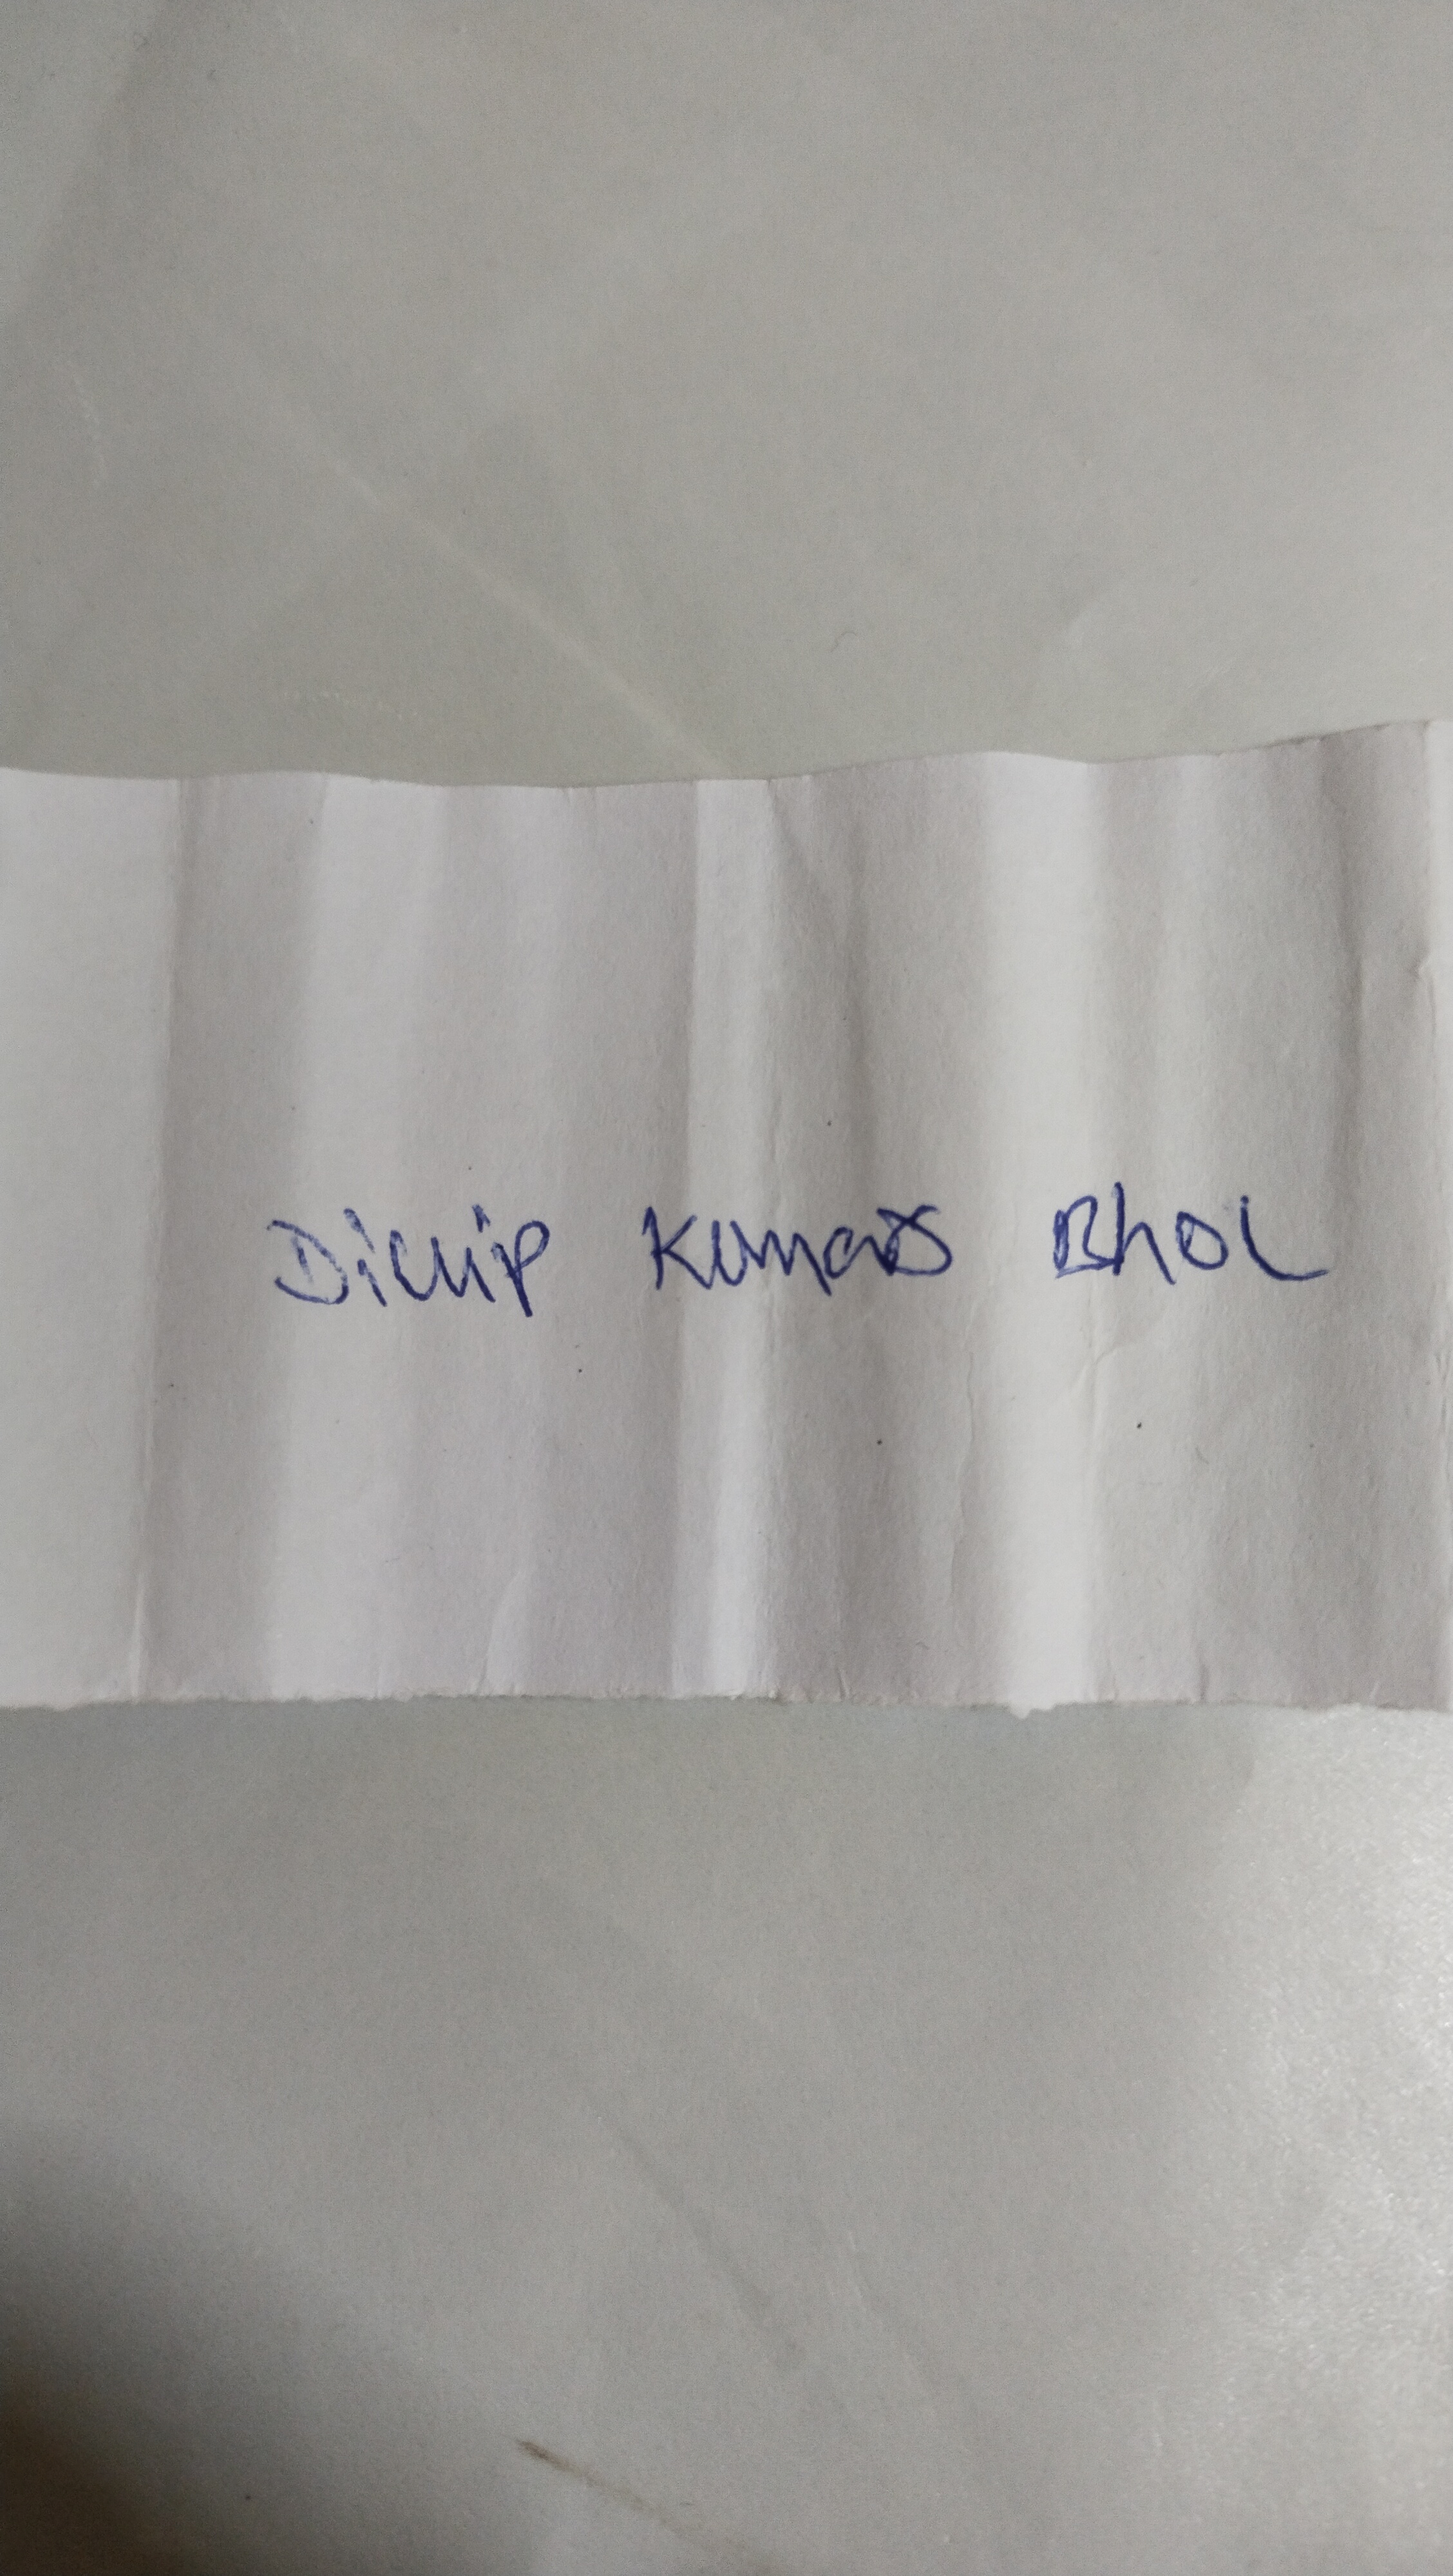 Dillip Kumar Bhol